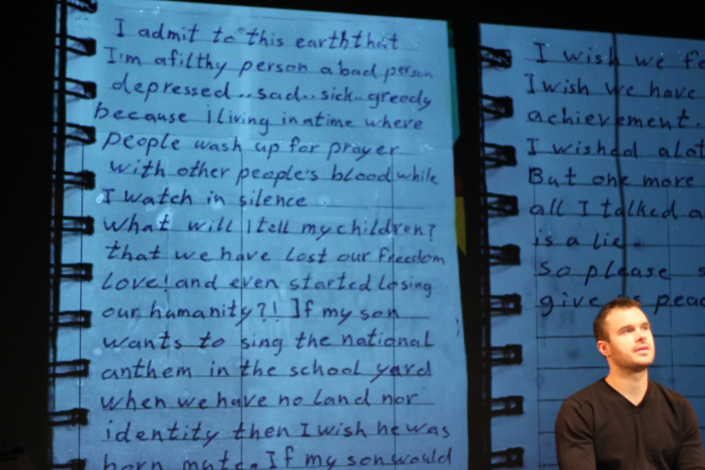 I admit to this earth that
I'm afilthy person a bad person
depressed..sad..sick..greedy
because i living in atime where
people wash up for prayer
with other people's blood while
I watch in silence
what will I tell my children?
that we have lost our freedom
Love! and even started losing
our humanity?! If my son
wants to sing the national
anthem in the school yard
when we have no land nor
identity then I wish he was
born mute. If my son would
I wish we fe
I wish we have
achievement.
I wished alot
But one more
all I talked a
is a lie..
so please s
give peac